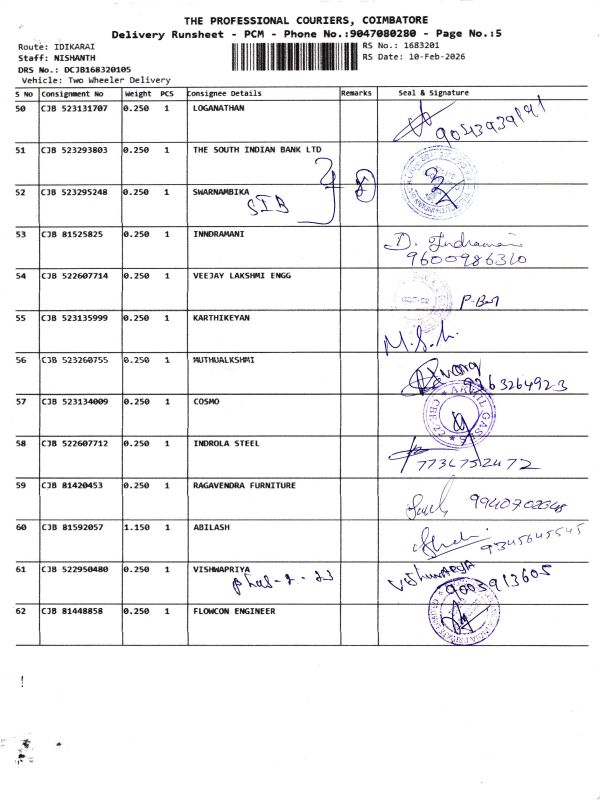 THE PROFESSIONAL COURIERS, COIMBATORE
Delivery Runsheet - PCM - Phone No.:9047080280 - Page No.:5
Route: IDIKARAI
RS No.: 1683201
Staff: NISHANTH
RS Date: 10-Feb-2026
DRS No.: DCJB168320105
Vehicle: Two Wheeler Delivery
S No Consignment No Weight PCS Consignee Details Remarks Seal & Signature
50 CJB 523131707 0.250 1 LOGANATHAN
9043939191
51 CJB 523293803 0.250 1 THE SOUTH INDIAN BANK LTD
52 CJB 523295248 0.250 1 SWARNAMBIKA
SIB
53 CJB 81525825 0.250 1 INNDRAMANI D. Indramani
9600986310
54 CJB 522607714 0.250 1 VEEJAY LAKSHMI ENGG
55 CJB 523135999 0.250 1 KARTHIKEYAN
56 CJB 523260755 0.250 1 MUTHUALKSHMI
9363264923
57 CJB 523134009 0.250 1 COSMO
58 CJB 522607712 0.250 1 INDROLA STEEL
7734752472
59 CJB 81420453 0.250 1 RAGAVENDRA FURNITURE
60 CJB 81592057 1.150 1 ABILASH 9345645545
61 CJB 522950480 0.250 1 VISHWAPRIYA
9003913605
62 CJB 81448858 0.250 1 FLOWCON ENGINEER